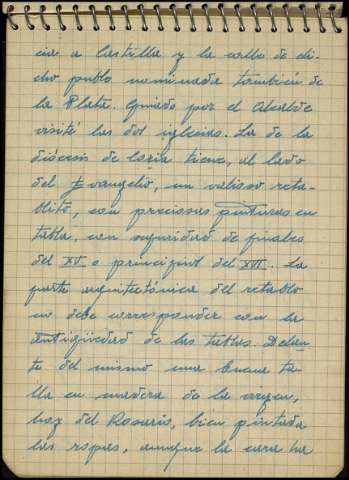 cia a Castilla y la calle de di-
cho pueblo nominada también de
la Plata. Guiado por el Alcalde
visité las dos iglesias. La de la
diócesis de Coria tiene, al lado
del Evangelio, un valioso reta-
blito, con preciosas pinturas en
tabla, con seguridad de finales
del XV o principios del XVI. La
parte arquitectónica del retablo
no debe corresponder con la
antigüedad de las tablas. Delan-
te del mismo una buena ta-
lla en madera de la virgen,
hoy del Rosario, bien pintada
las ropas, aunque la cara ha